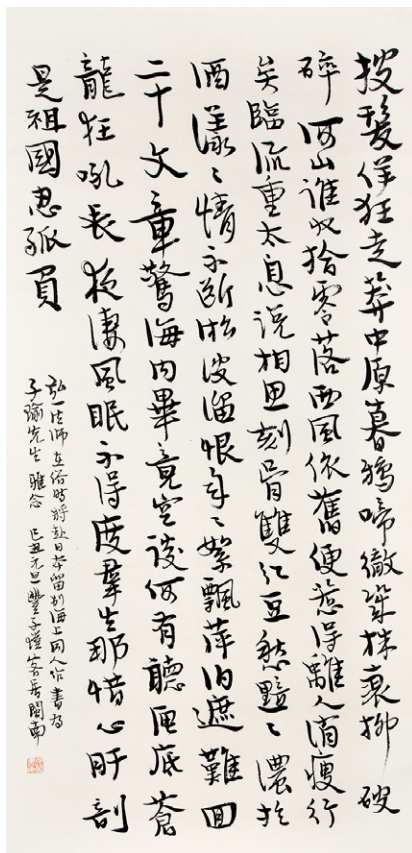 披髮佯狂走莽中原暮鴉啼徹幾株衰柳破
碎河山誰收拾零落西風依舊便惹得離人消瘦行
矣臨流重太息說相思刻骨雙紅豆愁黯〻濃於
酒漾〻情不斷淞波溜恨年〻絮飄萍泊遮難回
二十文章驚海內畢竟空談何有聽匣底蒼
龍狂吼長夜淒風眠不得度羣生那惜心肝剖
是祖國忍孤負
弘一法師在俗時將赴日本留別海上同人作 書為
子瑜先生 雅念 己丑元旦豐子愷客居閩南